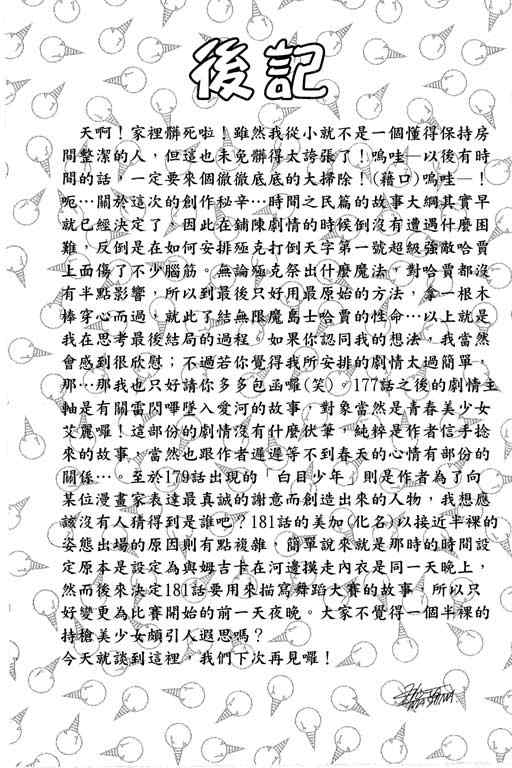 後記
天啊！家裡髒死啦！雖然我從小就不是一個懂得保持房
間整潔的人，但這也未免髒得太誇張了！嗚哇─以後有時
間的話，一定要來個徹徹底底的大掃除！(藉口)嗚哇─！
呃…關於這次的創作秘辛…時間之民篇的故事大綱其實早
就已經決定了，因此在鋪陳劇情的時候倒沒有遭遇什麼困
難，反倒是在如何安排極克打倒天字第一號超級強敵哈賈
上面傷了不少腦筋。無論極克祭出什麼魔法，對哈賈都沒
有半點影響，所以到最後只好用最原始的方法，拿一根木
棒穿心而過，就此了結無限魔島士哈賈的性命…以上就是
我在思考最後結局的過程。如果你認同我的想法，我當然
會感到很欣慰；不過若你覺得我所安排的劇情太過簡單，
那…那我也只好請你多多包函囉(笑)。177話之後的劇情主
軸是有關雷閃嗶墜入愛河的故事，對象當然是青春美少女
艾麗囉！這部份的劇情沒有什麼伏筆，純粹是作者信手捻
來的故事，當然也跟作者遲遲等不到春天的心情有部份的
關係…。至於179話出現的「白目少年」則是作者為了向
某位漫畫家表達最真誠的謝意而創造出來的人物，我想應
該沒有人猜得到是誰吧？181話的美加(化名)以接近半裸的
姿態出場的原因則有點複雜，簡單說來就是那時的時間設
定原本是設定為與姆吉卡在河邊摸走內衣是同一天晚上，
然而後來決定181話要用來描寫舞蹈大賽的故事，所以只
好變更為比賽開始的前一天夜晚。大家不覺得一個半裸的
持槍美少女頗引人遐思嗎？
今天就談到這裡，我們下次再見囉！